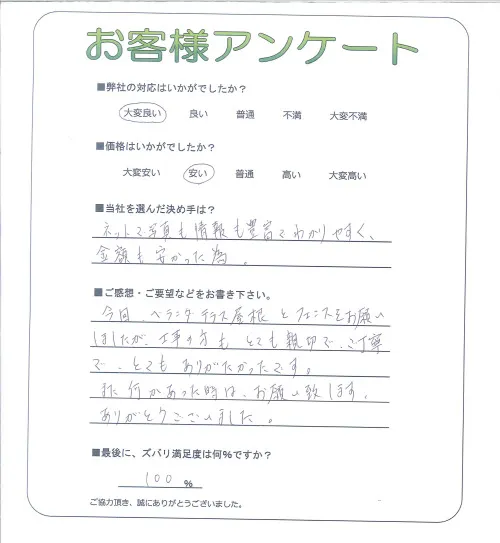 お客様アンケート
■弊社の対応はいかがでしたか?
大変良い 良い 普通 不満 大変不満
■価格はいかがでしたか?
大変安い 安い 普通 高い 大変高い
■当社を選んだ決め手は?
ネットで写真も情報も豊富でわかりやすく、
金額も安かった為。
■ご感想・ご要望などをお書き下さい。
今回 ベランダテラス屋根とフェンスをお願い
しましたが、工事の方も とても親切で、ご丁寧
で、とてもありがたかったです。
また何かあった時は、お願い致します。
ありがとうございました。
■最後に、ズバリ満足度は何%ですか?
100 %
ご協力頂き、誠にありがとうございました。